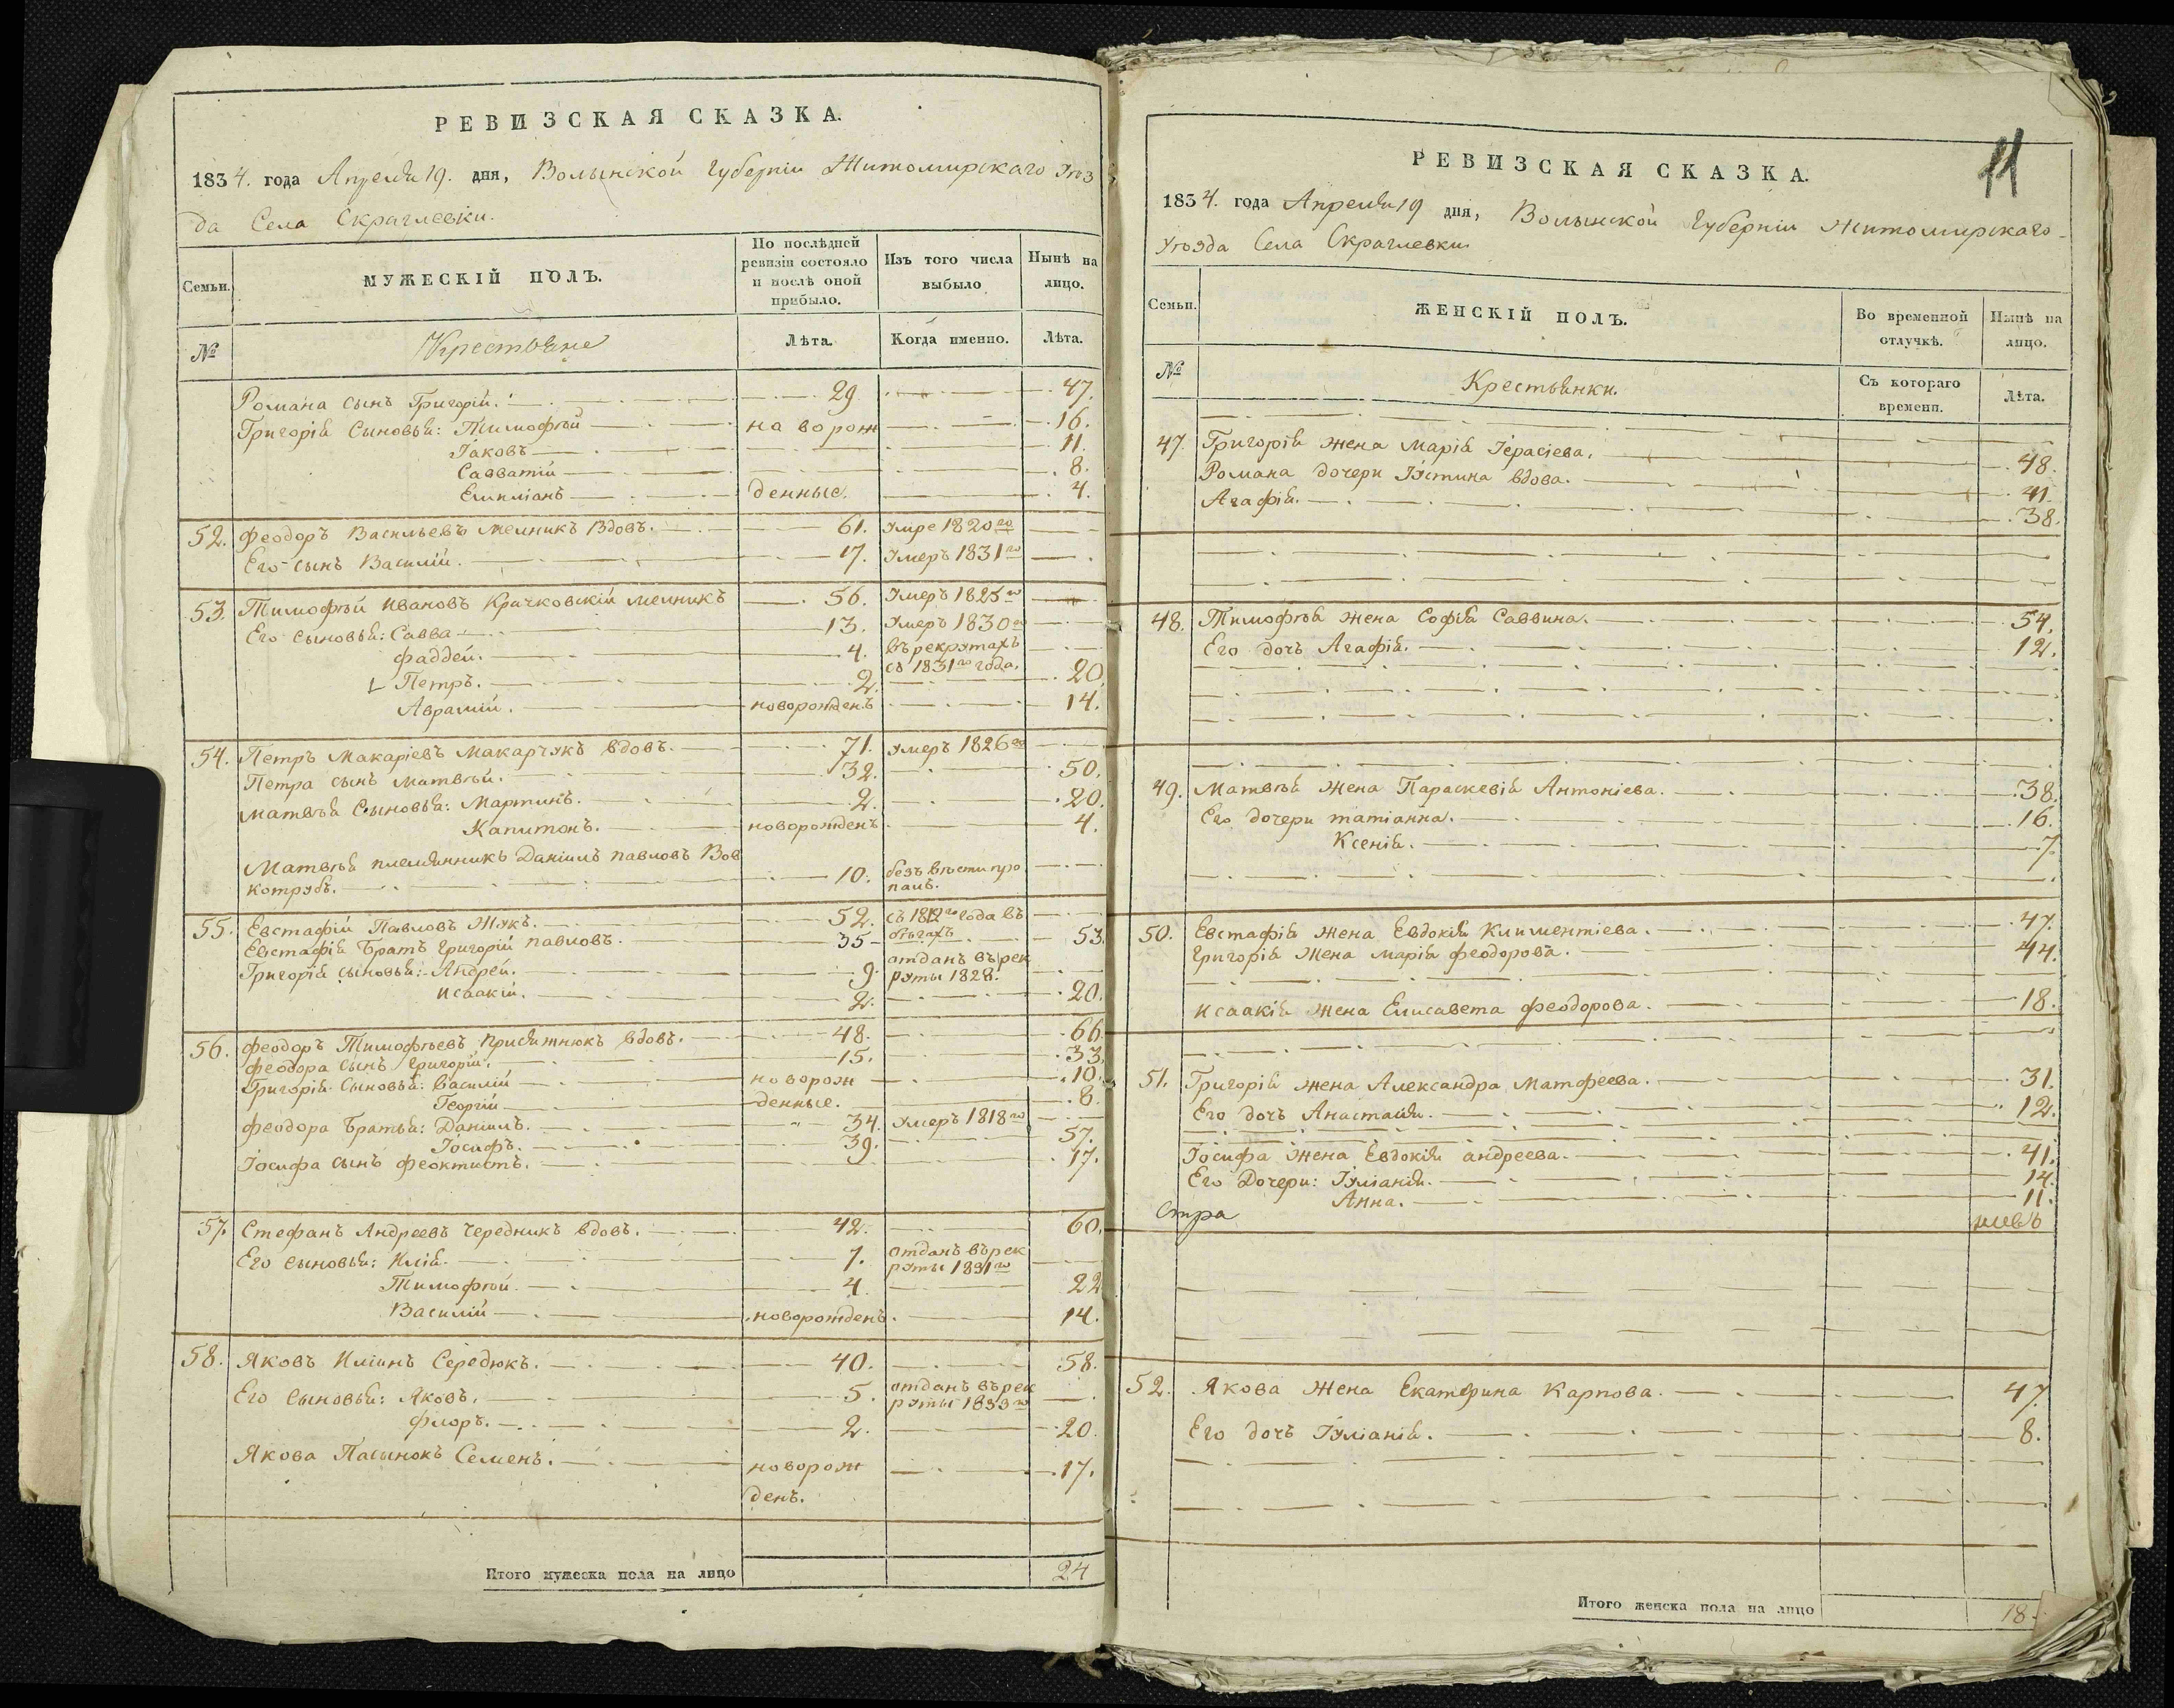 РЕВИЗСКАЯ СКАЗКА.
1834. года Апреля 19. дня, Волынской Губерніи Житомирскаго Уѣз
да Села Скраглевки.
Семьи.
МУЖЕСКІЙ ПОЛЪ.
По послѣдней ревизіи состояло и послѣ оной прибыло.
Изъ того числа выбыло
Нынѣ на лицо.
№
Крестьяне
Лѣта.
Когда именно.
Лѣта.
Романа сынъ Григорій. 29 47.
Григорія Сыновья: Тимофѣй на ворож 16.
Іаковъ 11.
Савватій 8.
Емиліанъ денные. 4.
52. Феодоръ Васильевъ мелникъ Вдовъ. 61. Умре 1820го
Его сынъ Василій. 17. Умеръ 1831го
53. Тимофѣй Ивановъ Крачковскій мелникъ 56. Умеръ 1825го
Его сыновья: Савва 13. Умеръ 1830го
Фаддей. 4. въ рекрутахъ
съ 1831го года.
Петръ. 2. 20.
Аврамій. новорожденъ 14.
54. Петръ Макаріевъ Макарчукъ вдовъ. 71. умеръ 1826го
Петра сынъ Матвѣй. 32. 50.
Матвѣя Сыновья: Мартинъ. 2. 20.
Капитонъ. новорожденъ 4.
Матвѣя племянникъ Даніилъ Павловъ Вов
котрубъ. 10. безъ вѣсти про
палъ.
55. Евстафій Павловъ Жукъ. 52. съ 1812го года въ
бѣгахъ
Евстафія Братъ Григорій Павловъ. 35 53.
Григорія сыновья: Андрей. 9. отданъ въ рек
руты 1828.
Исаакій. 2. 20.
56. Феодоръ Тимофѣевъ Присяжнюкъ вдовъ. 48. 66.
Феодора Сынъ Григорій. 15. 33.
Григорія Сыновья: Василій новорож 10.
Георгій денные. 8.
Феодора Братья: Даніилъ. 34. Умеръ 1818го
Іосифъ. 39. 57.
Іосифа сынъ Феоктистъ. 17.
57. Стефанъ Андреевъ Чередникъ вдовъ. 42. 60.
Его сыновья: Илія. 7. отданъ въ рек
руты 1831го
Тимофѣй. 4. 22
Василій новорожденъ. 14.
58. Яковъ Иліинъ Середюкъ. 40. 58.
Его сыновья: Яковъ. 5. отданъ въ рек
руты 1833го
Флоръ. 2. 20.
Якова Пасынокъ Семенъ. новорож 17.
денъ.
Итого мужеска пола на лицо 24
11
РЕВИЗСКАЯ СКАЗКА.
1834. года Апреля 19 дня, Волынской Губерніи Житомирскаго
Уѣзда Села Скраглевки
Семьи.
ЖЕНСКІЙ ПОЛЪ.
Во временной отлучкѣ.
Нынѣ на лицо.
№
Крестьянки.
Съ котораго времени.
Лѣта.
47. Григорія жена Марія Герасіева. 48.
Романа дочери Іустина вдова. 41
Агафія. 38.
48. Тимофѣя жена Софія Саввина. 54.
Его дочь Агафія. 12.
49. Матвѣя жена Параскевія Антоніева. 38.
Его дочери татіанна. 16.
Ксенія. 7.
50. Евстафія жена Евдокія Климентіева. 47.
Григорія Жена Марія Феодорова. 44.
Исаакія жена Елисавета Феодорова. 18.
51. Григорія жена Александра Матфеева. 31.
Его дочь Анастасія. 12.
Іосифа жена Евдокія андреева. 41.
Его Дочери: Іуліанія. 14.
Анна. 11.
Стра
52. Якова Жена Екатерина Карпова. 47.
Его дочь Іуліанія. 8.
Итого женска пола на лицо 18.